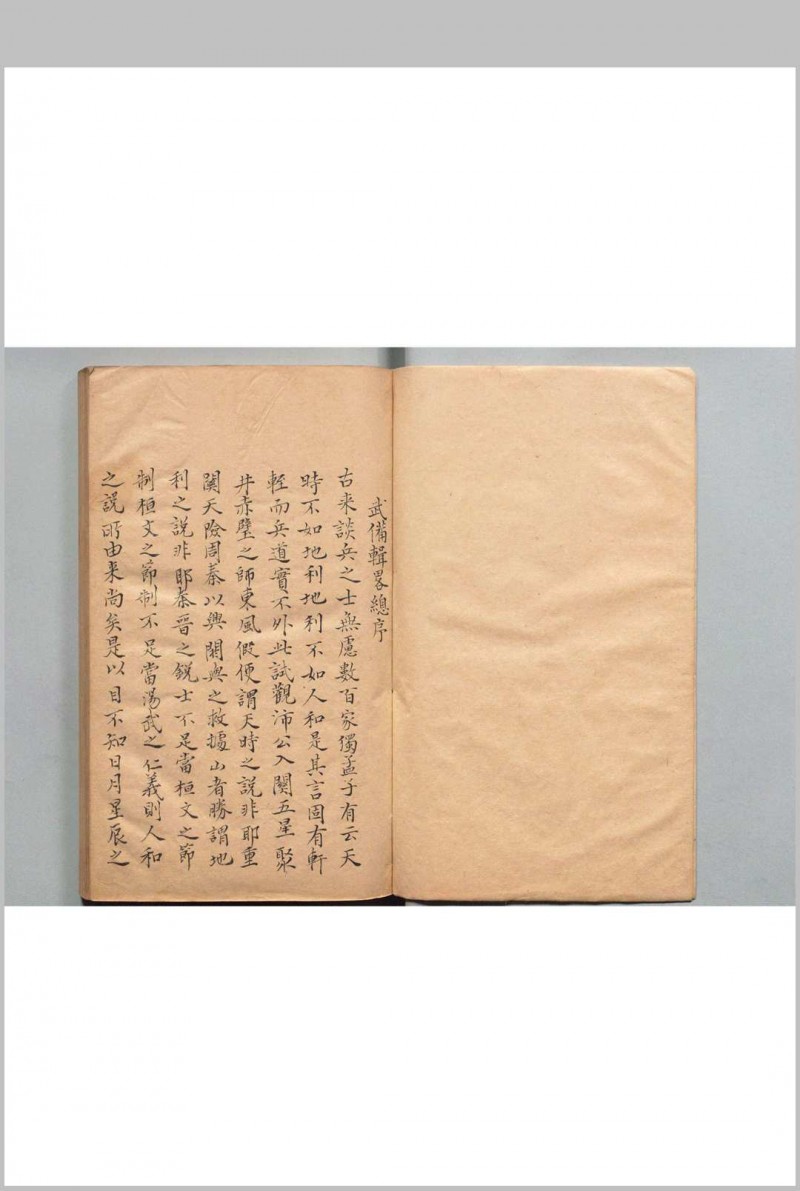 武備輯畧總序
古来談兵之士無慮數百家獨孟子有云天
時不如地利地利不如人和是其言固有軒
輊而兵道實不外此試觀沛公入關五星聚
井赤壁之師東風假便謂天時之説非耶重
關天險周秦以興閼與之救據山者勝謂地
利之説非耶秦晋之銳士不足當桓文之節
制桓文之節制不足當湯武之仁義則人和
之説所由来尚矣是以目不知日月星辰之